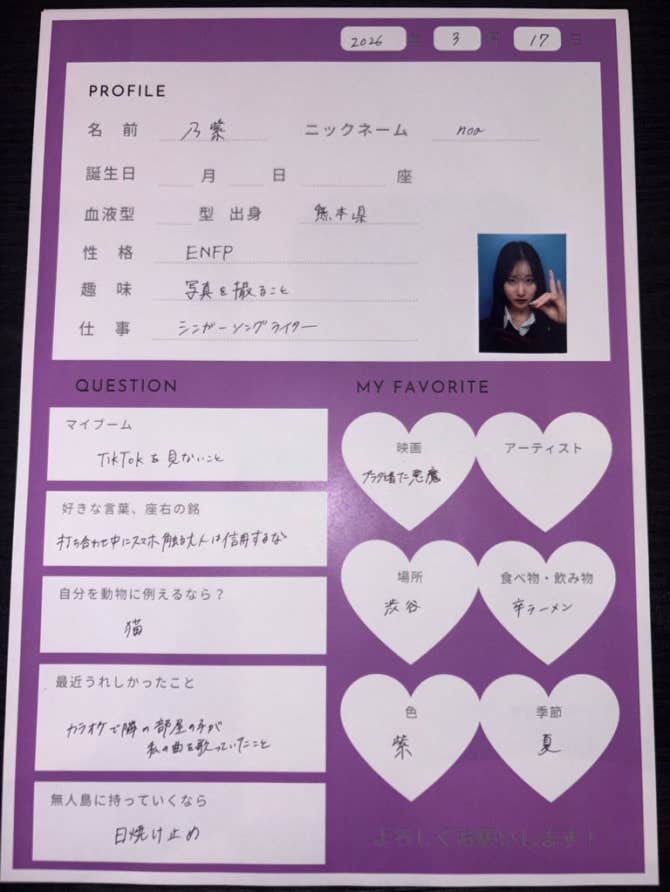 2026 年 3 月 17 日
PROFILE
名 前 乃紫 ニックネーム noa
誕生日 月 日 座
血液型 型 出身 熊本県
性 格 ENFP
趣 味 写真を撮ること
仕 事 シンガーソングライター
QUESTION
マイブーム
TikTokを見ないこと
好きな言葉、座右の銘
打ち合わせ中にスマホ触る大人は信用するな
自分を動物に例えるなら？
猫
最近うれしかったこと
カラオケで隣の部屋の子が
私の曲を歌っていたこと
無人島に持っていくなら
日焼け止め
MY FAVORITE
映画
プラダを着た悪魔
アーティスト
場所
渋谷
食べ物・飲み物
辛ラーメン
色
紫
季節
夏
よろしくお願いします！